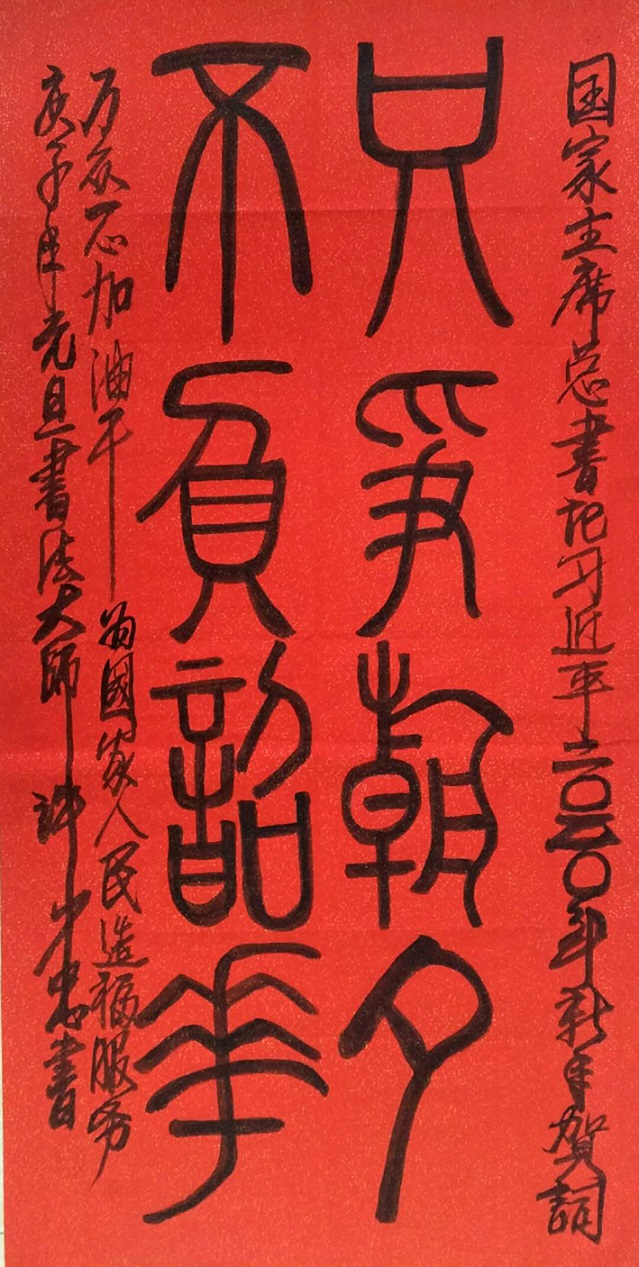 国家主席总书记习近平二〇二〇年新年贺词
只争朝夕
不負韶華
万众一心加油干 为國家人民造福服务
庚子年元旦書法大师許少忠書